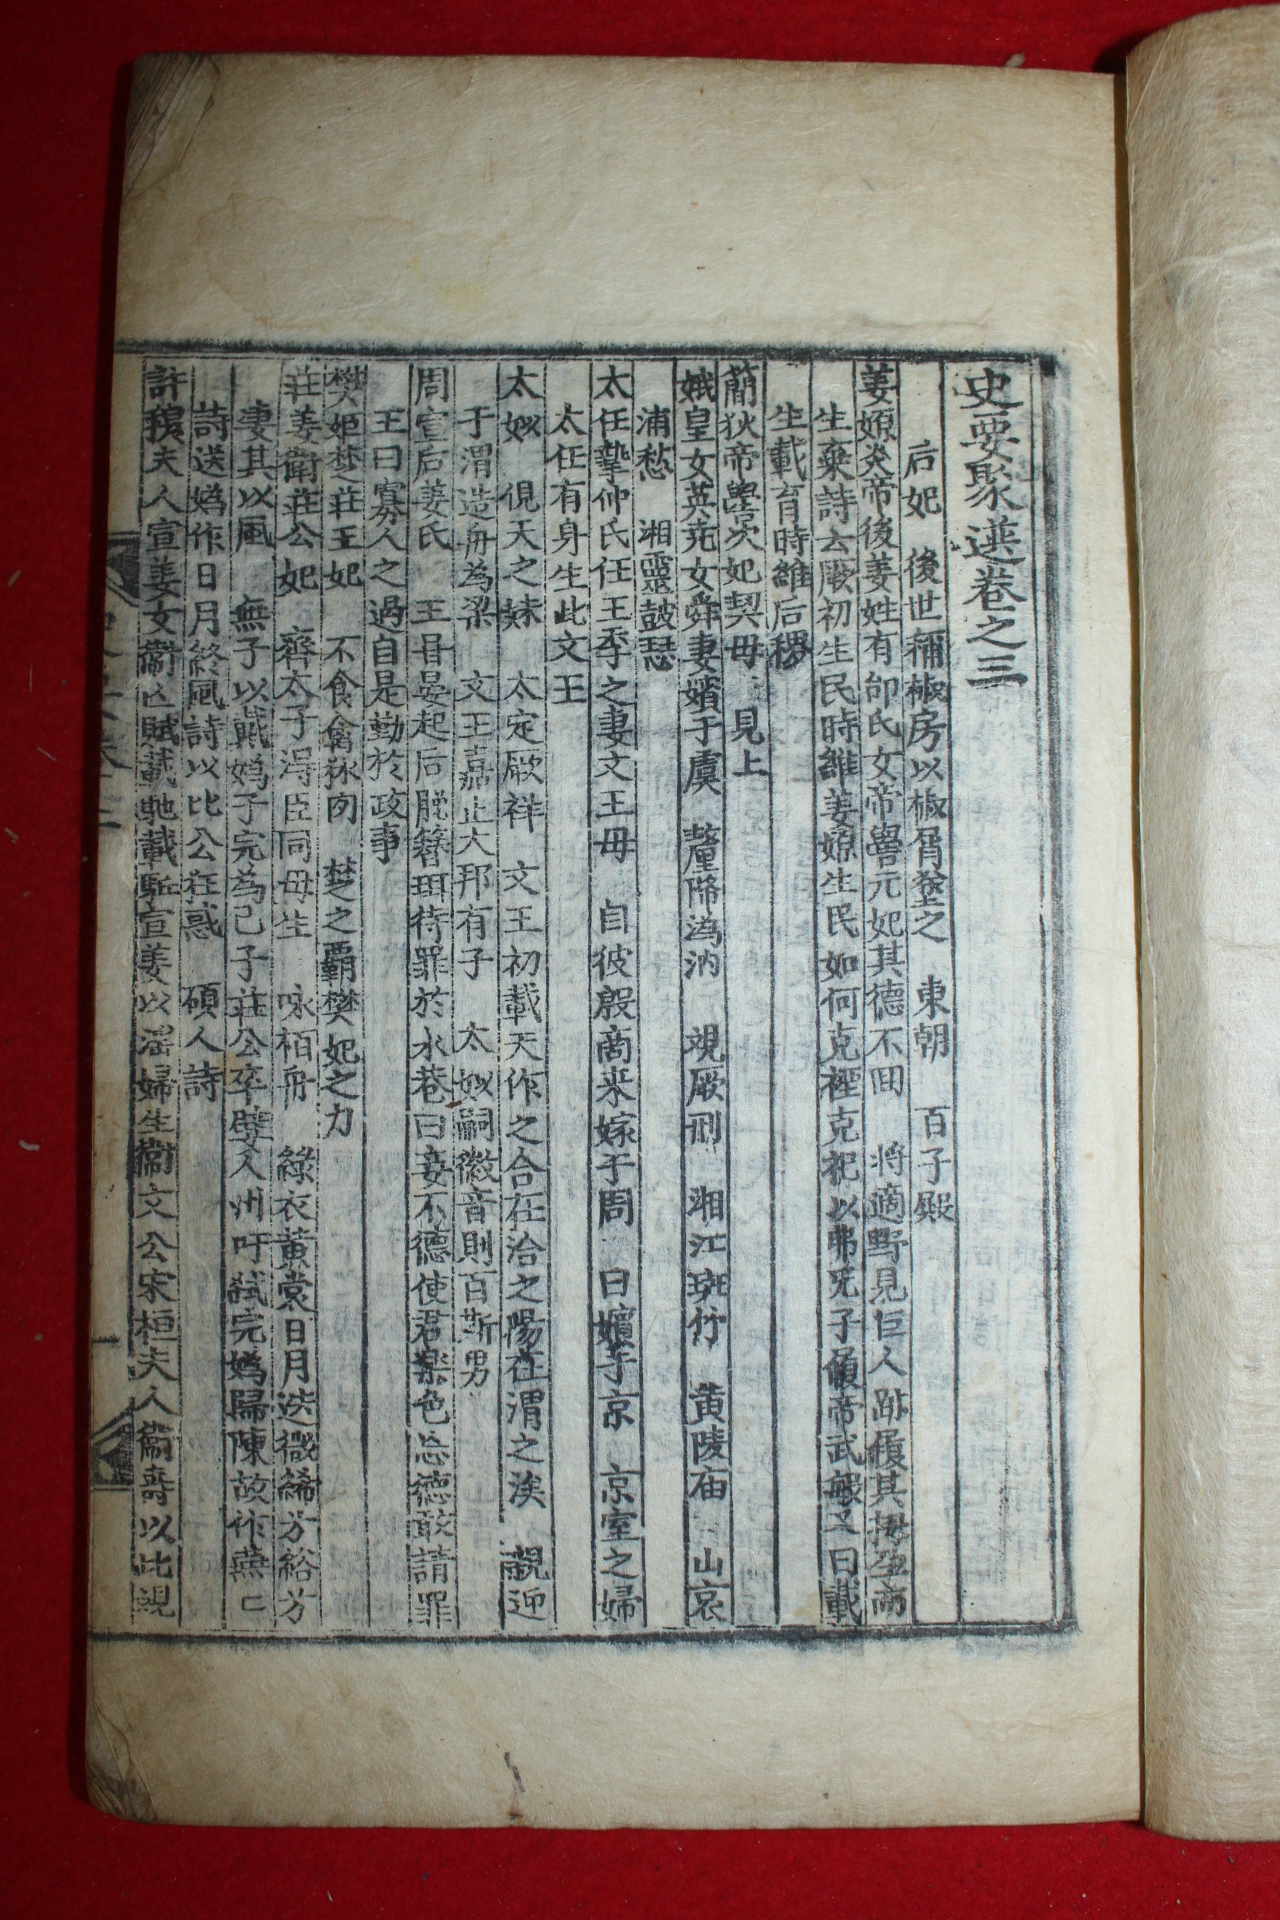 史要聚選卷之三
后妃 後世稱椒房以椒屑塗之 東朝 百子殿
姜嫄炎帝後姜姓有邰氏女帝嚳元妃其德不回 將適野見巨人跡履其拇歪啇
生棄詩云厥初生民時維姜嫄生民如何克禋克祀以弗旡子履帝武敏又曰載
生載育時維后稷
簡狄帝嚳次妃契母 見上
娥皇女英尭女舜妻嬪于虞 釐降潙汭 覌厥刑 湘江斑竹 黄陵庙 山哀
浦愁 湘靈鼓瑟
太任摯仲氏任王季之妻文王母 自彼殷啇来嫁于周 曰嬪于京 京室之婦
太任有身生此文王
太姒 俔天之妹 太定厥祥 文王初載天作之合在洽之陽在渭之涘 親迎
于渭造舟為梁 文王嘉止大邦有子 太姒嗣徽音則百斯男
周宣后姜氏 王甞晏起后脱簪珥待罪於永巷曰妾不德使君樂色忘德敢請罪
王曰寡人之過自是勤於政事
樊姬楚莊王妃 不食禽獸肉 楚之覇樊妃之力
莊姜衛莊公妃 齊太子淂臣同母生 咏柏舟 綠衣黄裳日月迭微絺兮綌兮
凄其以風 無子以戴嬀子完為己子莊公卒嬖人州吁弑完嬀歸陳故作燕〻
詩送嬀作日月終風詩以比公狂惑 碩人詩
許穆夫人宣姜女衞亡賦載馳載駈宣姜以滛婦生衞文公宋桓夫人衞壽以此覌